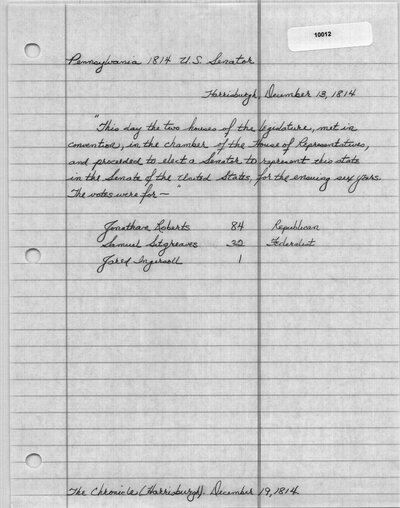 10012
Pennsylvania 1814 U.S. Senator
Harrisburgh, December 13, 1814
"This day the two houses of the legislature, met in
convention, in the chamber of the House of Representatives,
and proceeded to elect a Senator to represent this state
in the Senate of the United States, for the ensuing six years.
The votes were for — "
Jonathan Roberts 84 Republican
Samuel Sitgreaves 30 Federalist
Jared Ingersoll 1
The Chronicle (Harrisburgh). December 19, 1814